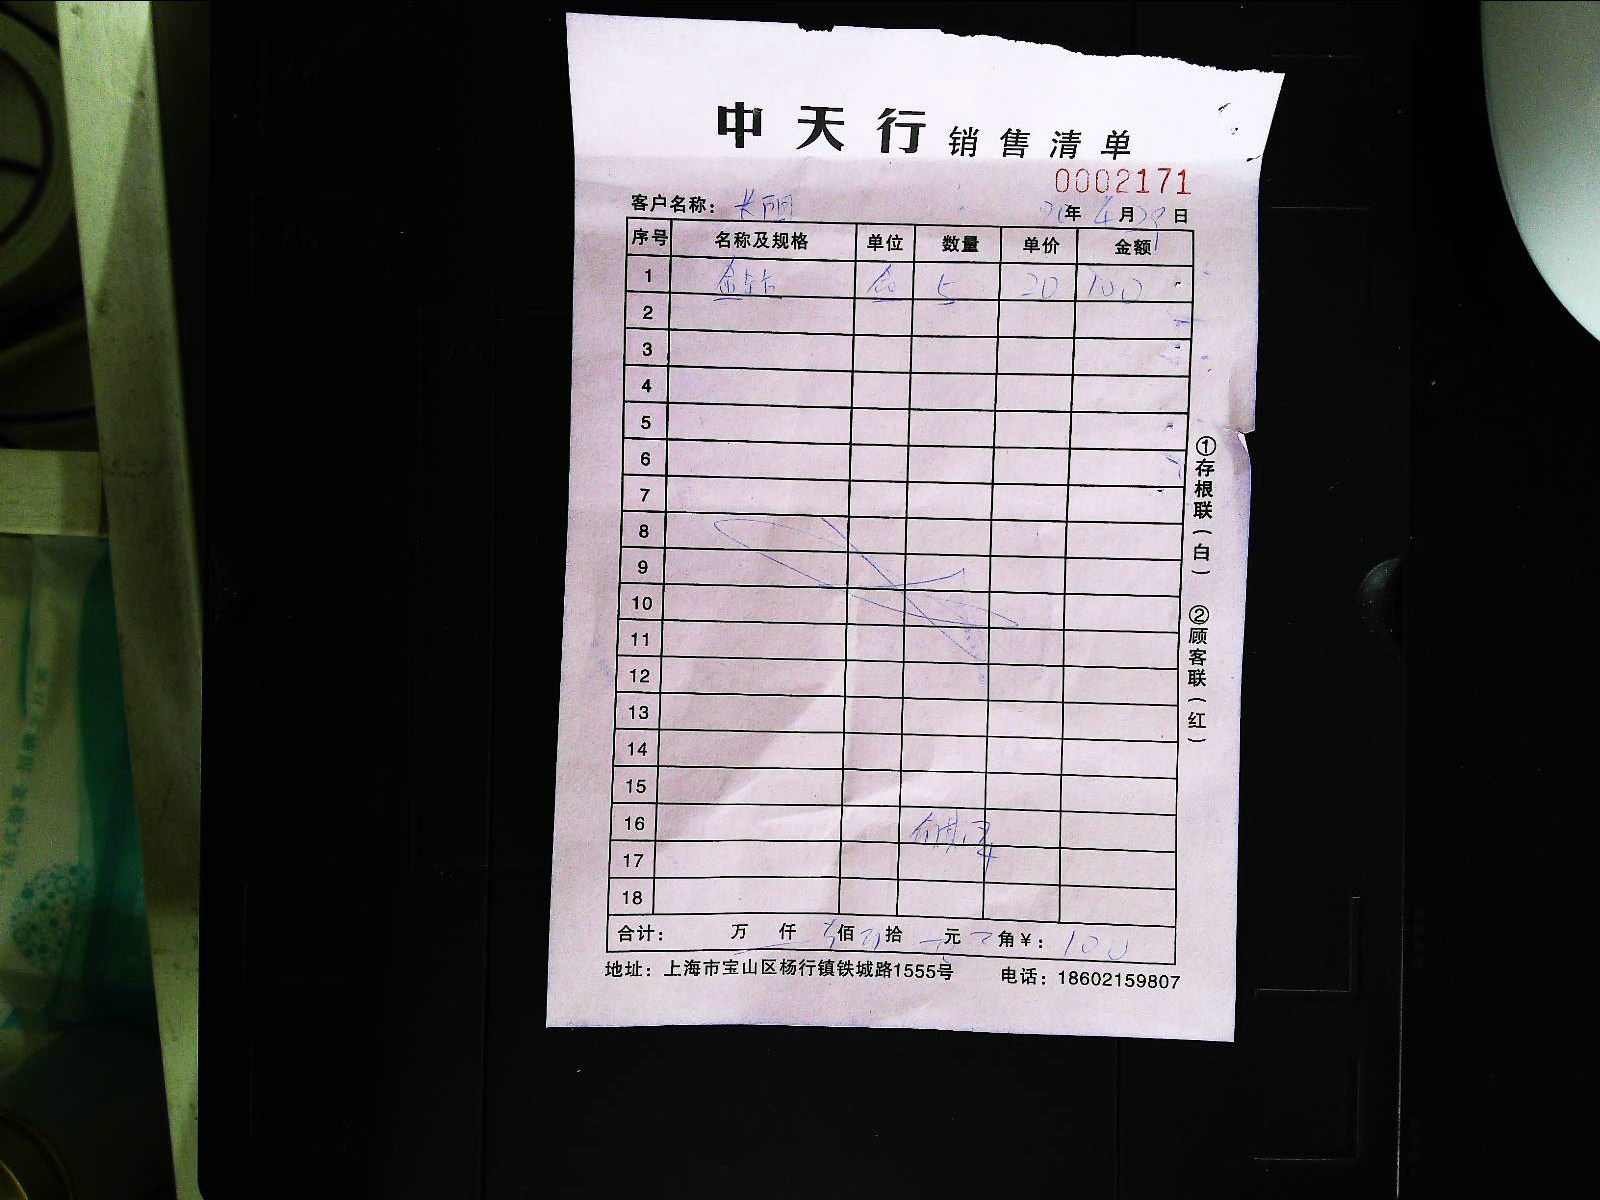 中天行 销售清单
0002171
客户名称: 长阳 20年4月29日
序号 名称及规格 单位 数量 单价 金额
1 5 20 100
2
3
4
5
6
7
8
9
10
11
12
13
14
15
16
17
18
合计: 万 仟 佰 拾 元 角¥: 100
地址: 上海市宝山区杨行镇铁城路1555号 电话: 18602159807
①存根联(白) ②顾客联(红)